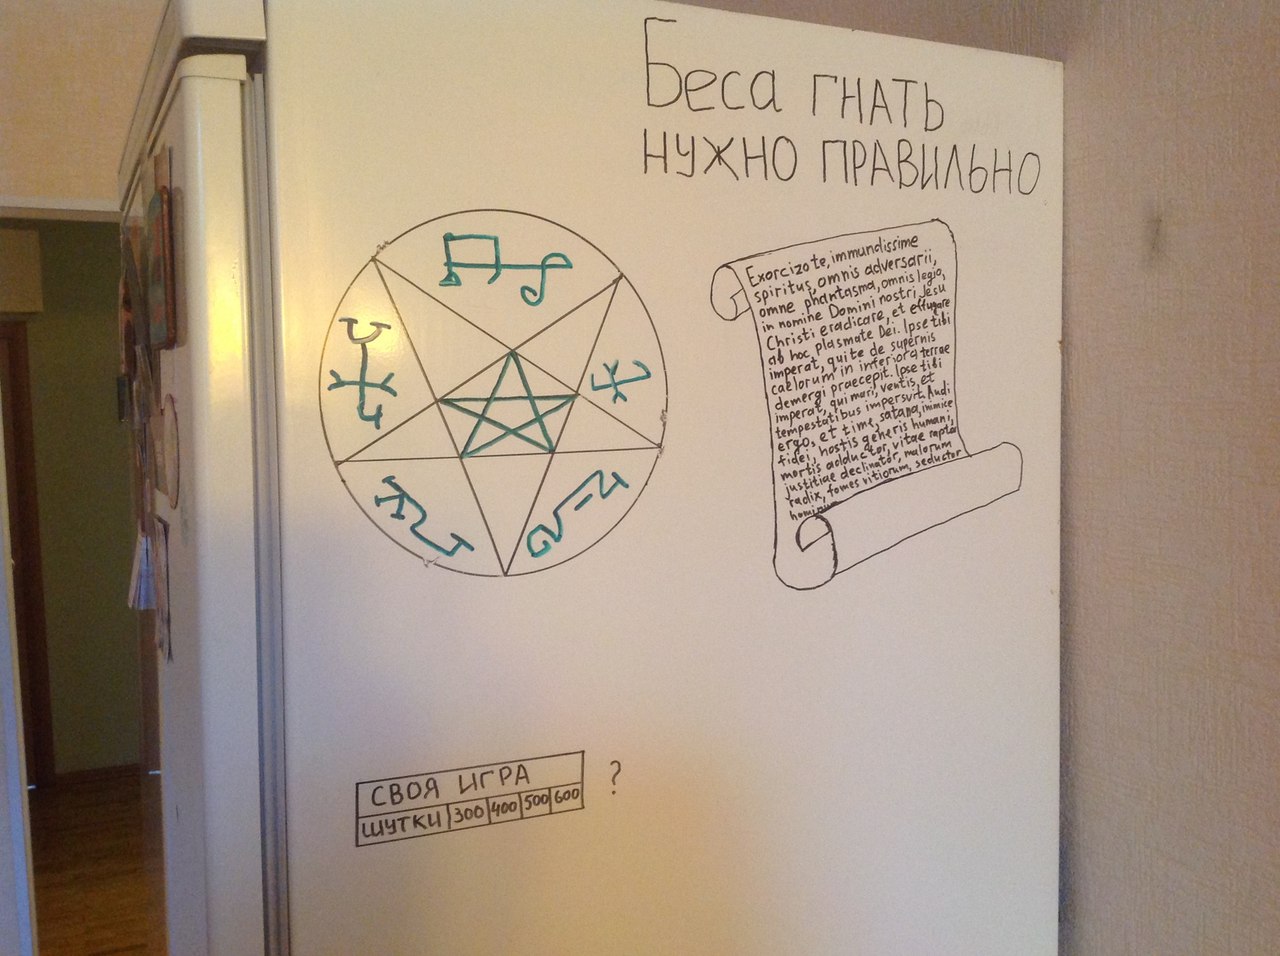 Беса гнать
нужно правильно
Exorcizo te, immundissime
spiritus, omnis adversarii,
omne phantasma, omnis legio,
in nomine Domini nostri Jesu
Christi eradicare, et effugare
ab hoc plasmate Dei. Ipse tibi
imperat, qui te de supernis
caelorum in inferiora terrae
demergi praecepit. Ipse tibi
imperat, qui mari, ventis et
tempestatibus impersvit. Audi
ergo, et time, satana, inimice
fidei, hostis generis humani,
mortis adductor, vitae raptor
justitiae declinator, malorum
radix, fomes vitiorum, seductor
СВОЯ ИГРА ?
ШУТКИ 300 400 500 600